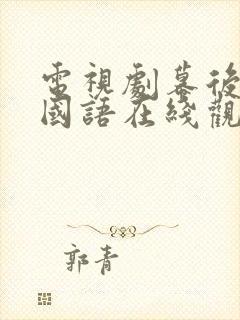 電視劇幕後
國語在綫觀
郭青